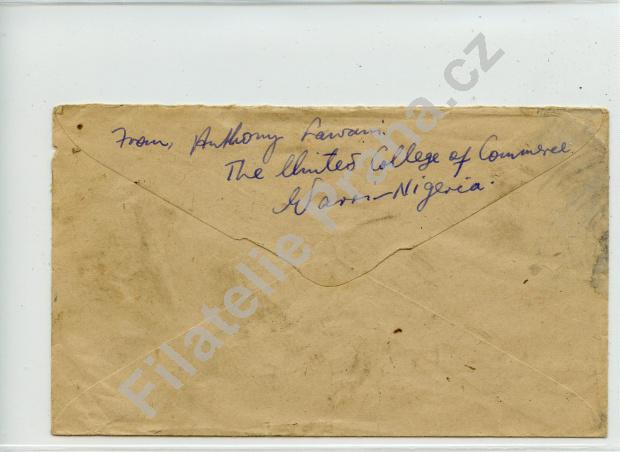 From, Anthony Lawani.
The United College of Commerce
Warri - Nigeria.
Filatelie Praha.cz